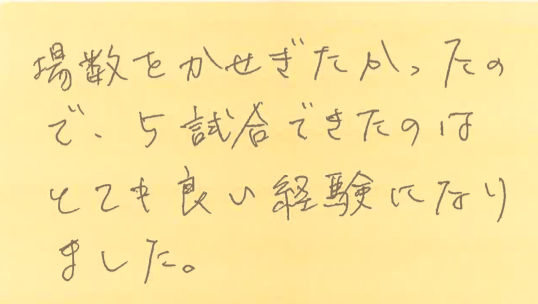 場数をかせぎたかったの
で、5試合できたのは
とても良い経験になり
ました。